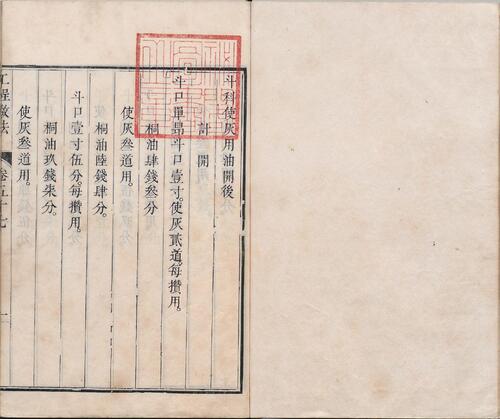 斗科使灰用油開後
計開
斗口單昂斗口壹寸。使灰貳道。每攢用。
桐油肆錢叁分
使灰叁道用。
桐油陸錢肆分。
斗口壹寸伍分。每攢用。
桐油玖錢柒分。
使灰叁道用。
工程做法 卷五十七 一